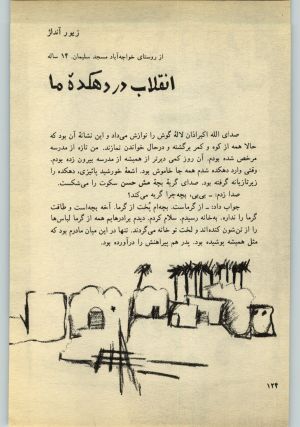 زیور آنداژ
از روستای خواجه‌آباد مسجد سلیمان، ۱۴ ساله
انقلاب در دهکدهٔ ما
صدای الله اکبراذان لالهٔ گوش را نوازش می‌داد و این نشانهٔ آن بود که
حالا همه از کوه و کمر برگشته و درحال خواندن نمازند. من تازه از مدرسه
مرخص شده بودم. آن روز کمی دیرتر از همیشه از مدرسه بیرون زده بودم.
وقتی وارد دهکده شدم همه جا خاموش بود. اشعهٔ خورشید پائیزی، دهکده را
زیرتازیانه گرفته بود. صدای گریهٔ بچهٔ مش حسن سکوت را می‌شکست.
صدا زدم: ـ بی‌بی، بچه‌چرا گریه می‌کند؟
جواب داد: ـ از گرماست. بچه‌ام پُخت از گرما. آخه بچه‌است و طاقت
گرما را نداره. به‌خانه رسیدم. سلام کردم. دیدم برادرهایم همه از گرما لباس‌ها
را از تن‌شون کنده‌اند و لخت تو خانه می‌گردند. تنها در این میان مادرم بود که
مثل همیشه پوشیده بود. پدر هم پیراهنش را درآورده بود.
۱۲۴